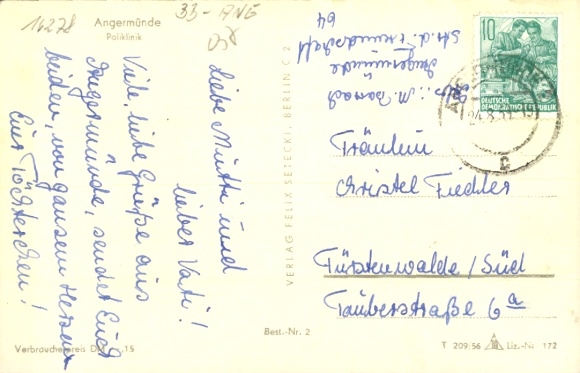 14278
Angermünde
Poliklinik
33-ANG
Liebe Mutti und
lieber Vati!
Viele, liebe Grüße aus
Angermünde, sendet Euch
beiden, von ganzem Herzen
Eur Töchterchen!
Verbraucherpreis DM 15
VERLAG FELIX SETECKI, BERLIN C 2
Best.-Nr. 2
Abs.: M.
Angermünde
Str. d. Freundschaft
64
10
DEUTSCHE
DEMOKRATISCHE REPUBLIK
Fräulein
Christel Fiedler
Fürstenwalde/Süd
Tauberstraße 6a
T 209/56 Liz.-Nr. 172